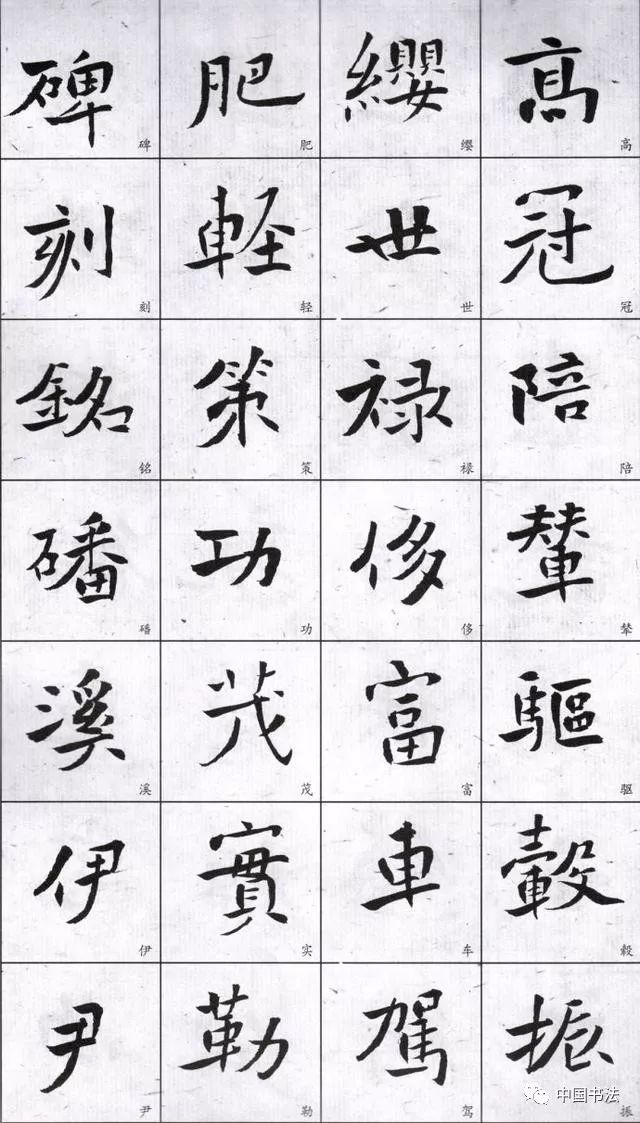 高冠陪輦驅轂振
纓世禄侈富車駕
肥軽策功茂實勒
碑刻銘磻溪伊尹
高冠陪辇驱毂振
缨世禄侈富车驾
肥轻策功茂实勒
碑刻铭磻溪伊尹
中国书法